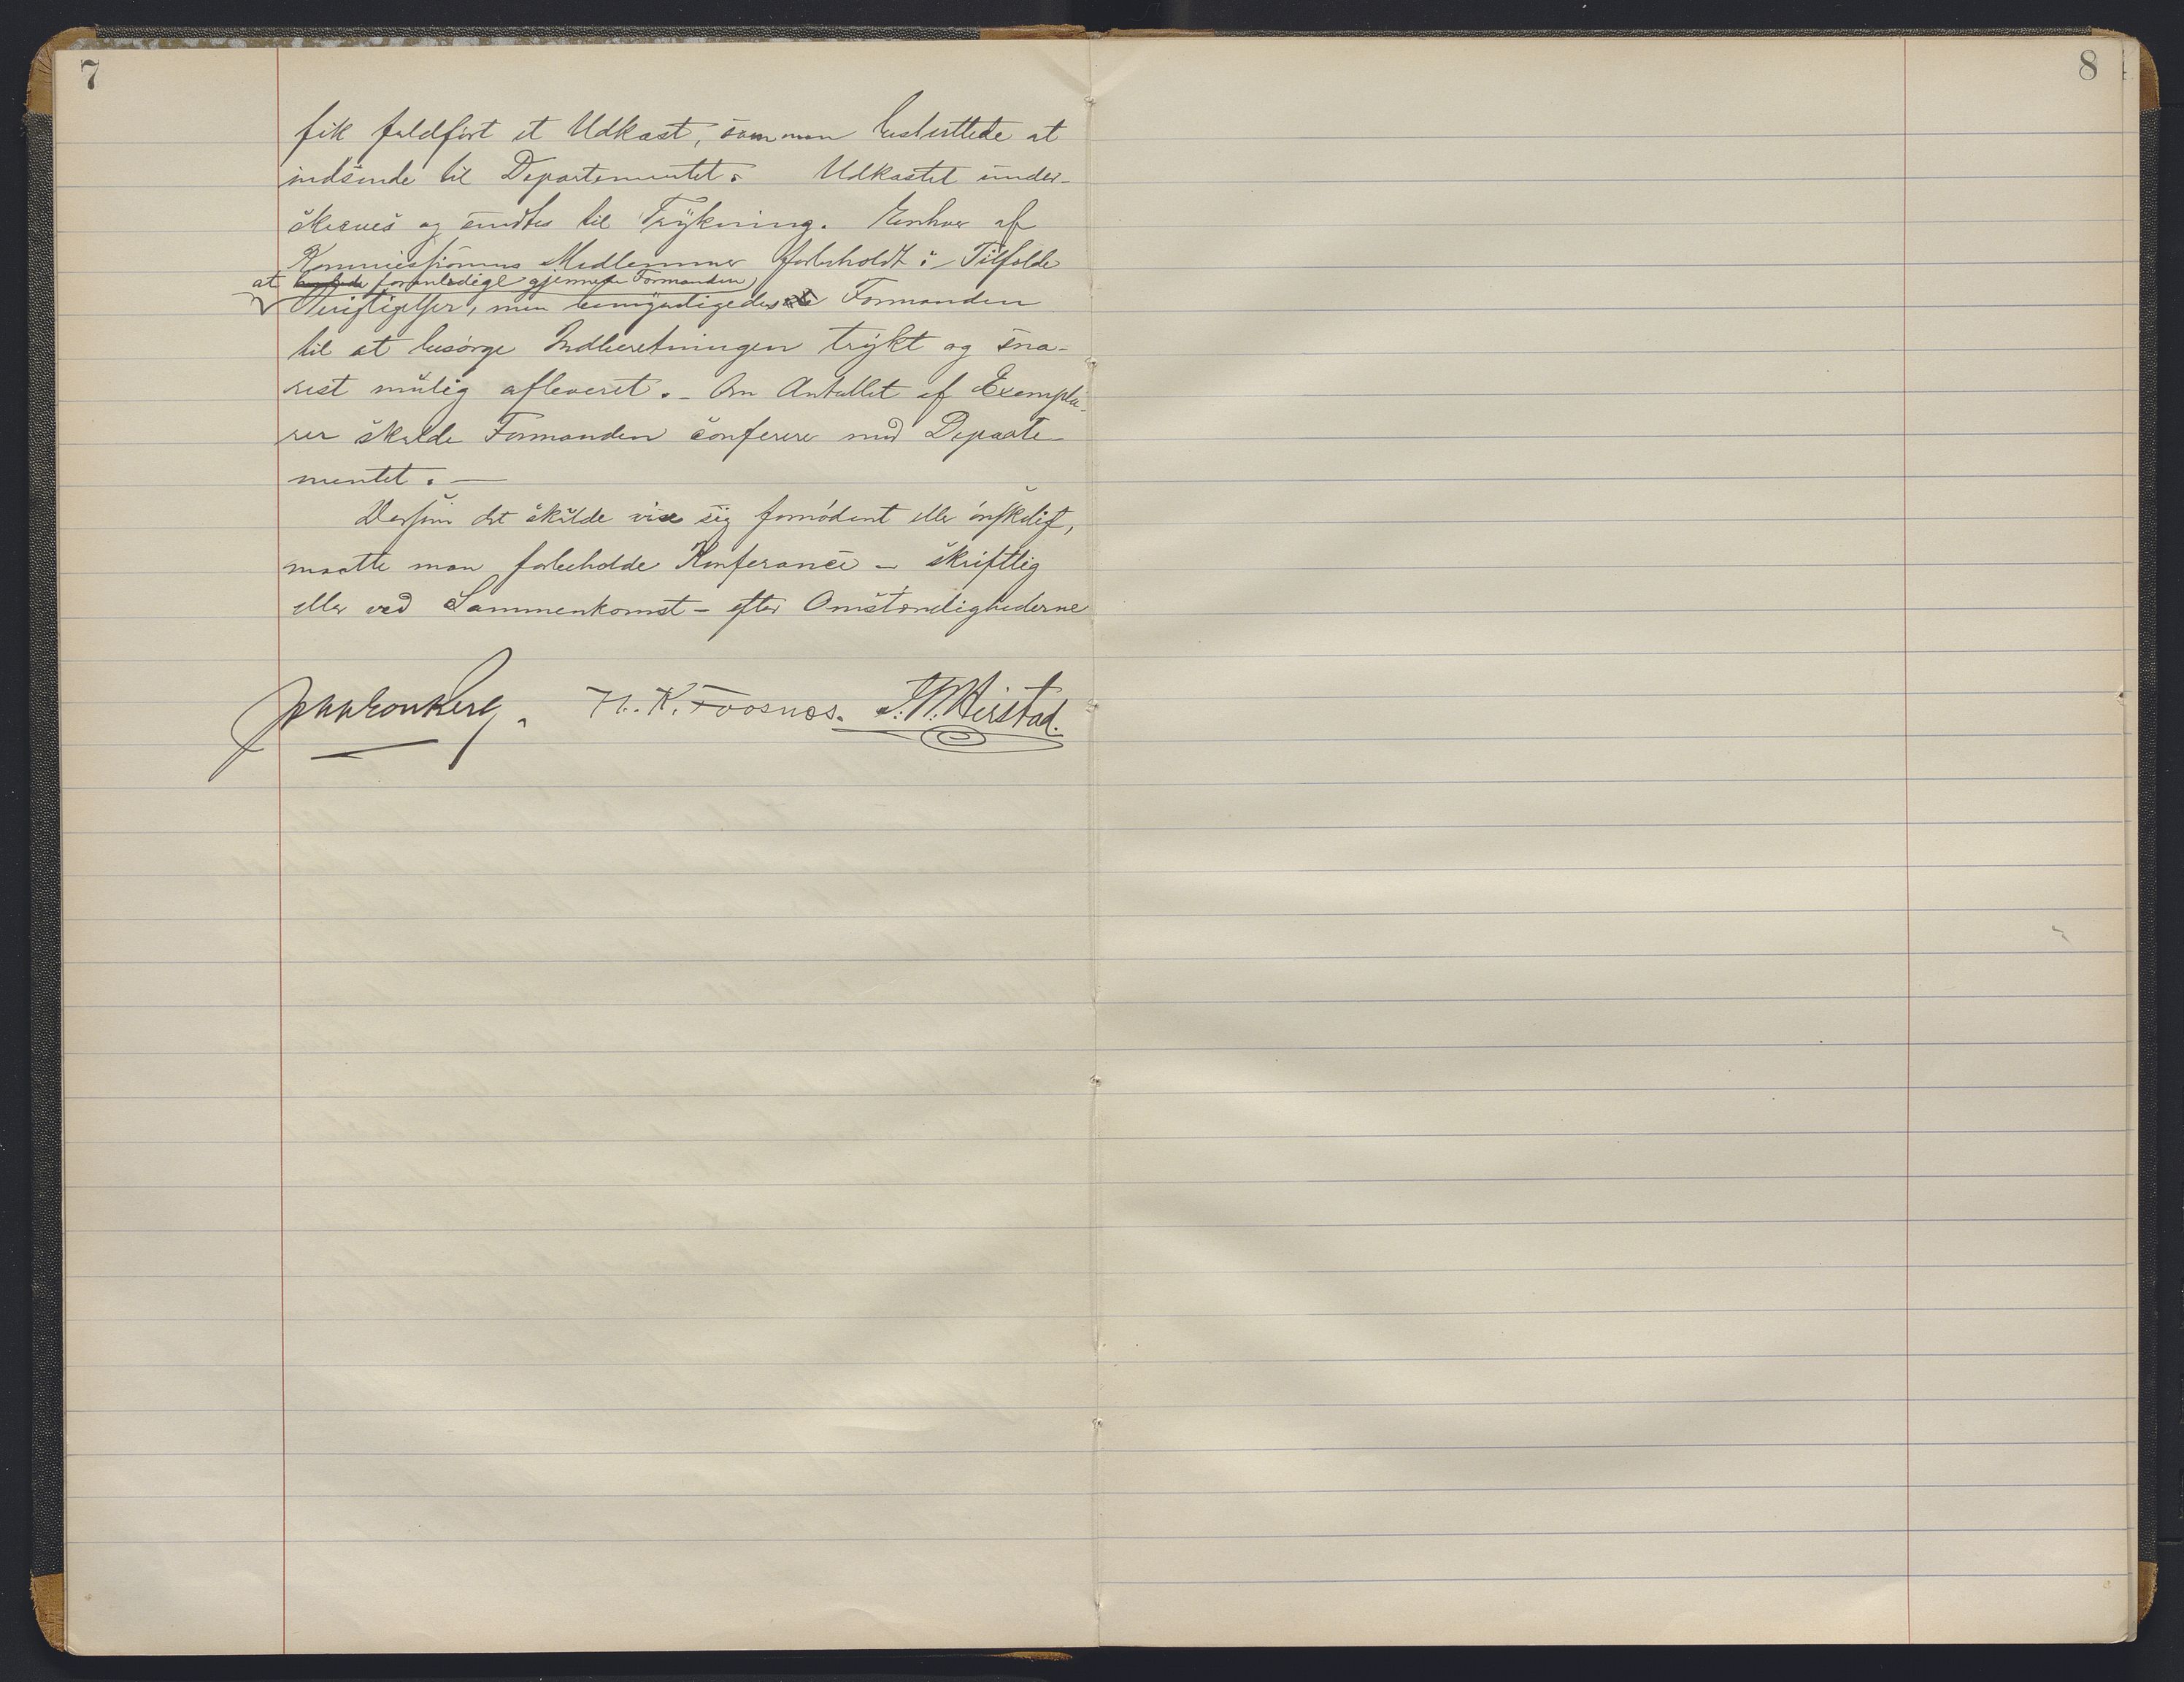 7
8
fik fuldført et Udkast, som man besluttede at
indsende til Departementet. Udkastet under-
skreves og sendtes til Trykning. Enhver af
Kommissionens Medlemmer forbeholdt i Tilfælde
at foranledige gjennem Formanden
Berigtigelser, men bemyndigedes Formanden
til at besørge Indberetningen trykt og sna-
rest mulig afleveret. - Om Antallet af Exempla-
rer skulde Formanden conferere med Departe-
mentet. —
Dersom det skulde vise sig fornødent eller ønskeligt,
maatte man forbeholde Konferance - skriftlig
eller ved Sammenkomst - efter Omstændighederne
H. K. Foosnæs. Heirstad.